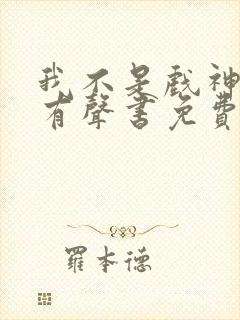 我不是戲神
有聲書免費
羅本德